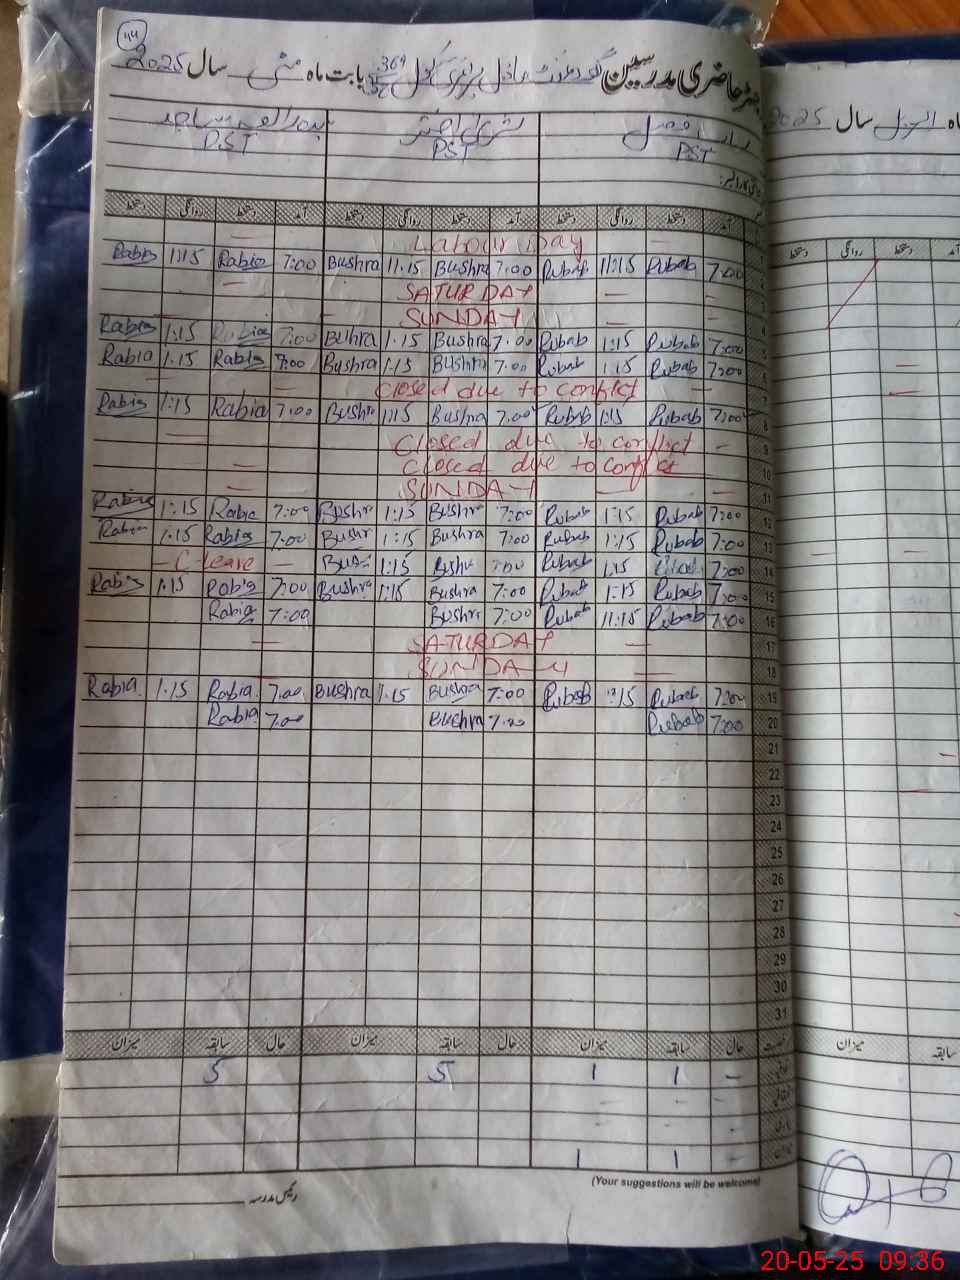 44
رجسٹر حاضری مدرسین گورنمنٹ ماڈل پرائمری سکول 369 بابت ماہ مئی سال 2025
PST PST PST
آمد دستخط روانگی دستخط آمد دستخط روانگی دستخط آمد دستخط روانگی دستخط
Labour Day 1
Rabia 1:15 Rabia 7:00 Bushra 11.15 Bushra 7:00 Rubab 11:15 Rubab 7:00 2
SATURDAY
SUNDAY 4
Rabia 1:15 Rabia 7:00 Buhra 1.15 Bushra 7.00 Rubab 1:15 Rubab 7:00 5
Rabia 1.15 Rabia 7:00 Bushra 1:15 Bushra 7.00 Rubab 1:15 Rubab 7:00 6
Closed due to conflict 7
Rabia 1:15 Rabia 7:00 Bushr 1:15 Bushra 7:00 Rubab 1:15 Rubab 7:00 8
Closed due to conflict 9
Closed due to conflict 10
SUNDAY 11
Rabia 1:15 Rabia 7:00 Bushr 1:15 Bushra 7:00 Rubab 1:15 Rubab 7:00 12
Rabia 1.15 Rabia 7:00 Bushr 1:15 Bushra 7:00 Rubab 1:15 Rubab 7:00 13
C-leave 1:15 7:00 Rubab 1:15 7:00 14
Rabia 1:15 Rabia 7:00 Bushra 1:15 Bushra 7:00 Rubab 1:15 Rubab 7:00 15
Rabia 7:00 Bushra 7:00 Rubab 11:15 Rubab 7:00 16
SATURDAY 17
SUNDAY 18
Rabia. 1.15 Rabia. 7:00 Bushra 1.15 Bushra 7:00 Rubab :15 Rubab 7:00 19
Rabia 7:00 Bushra 7:00 Rubab 7:00 20
21
22
23
24
25
26
27
28
29
30
31
حال سابقہ میزان حال سابقہ میزان حال سابقہ میزان
5 5 1 1 –
1 1 –
(Your suggestions will be welcome)
رئیس مدرسہ
ماہ اپریل سال 2025
دستخط روانگی دستخط آمد
میزان سابقہ
20-05-25 09:36